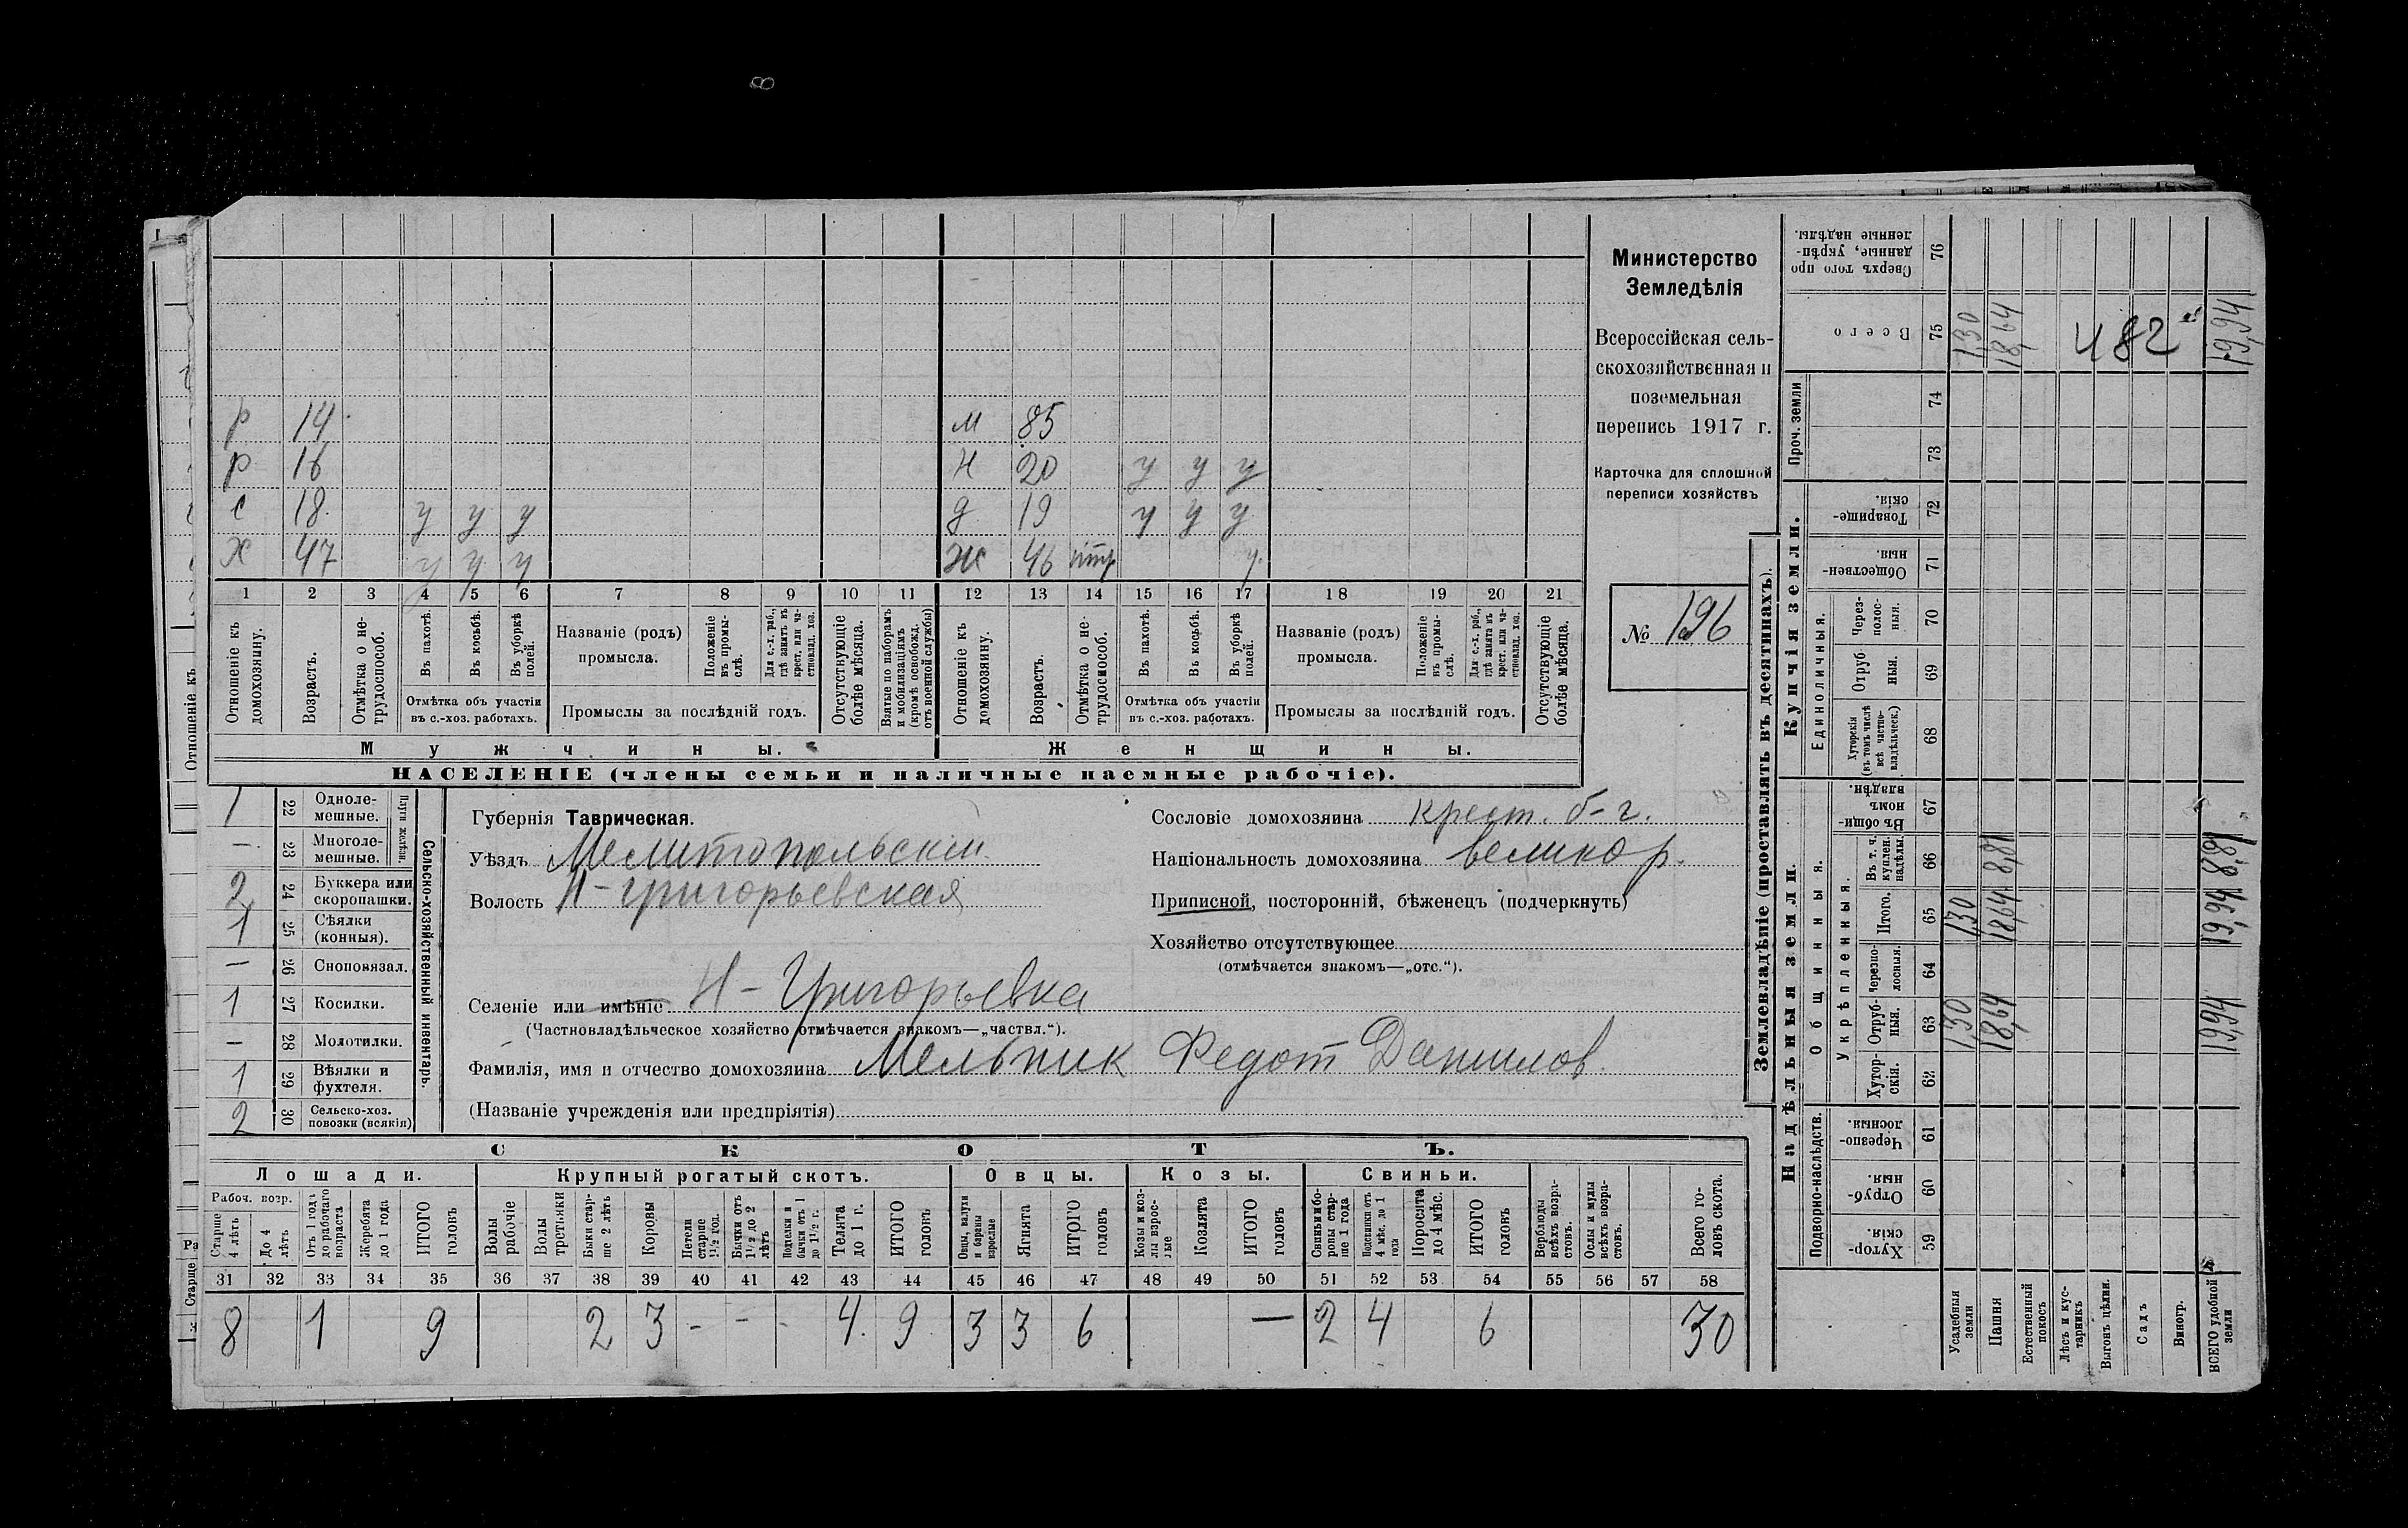 8
р 14 м 85
р 16 н 20 у у у
с 18 у у у д 19 у у у
х 47 у у у ж 46 у
1 2 3 4 5 6 7 8 9 10 11 12 13 14 15 16 17 18 19 20 21
Отношеніе къ домохозяину.
Возрастъ.
Отмѣтка о не-трудоспособ.
Въ пахотѣ.
Въ косьбѣ.
Въ уборкѣ полей.
Отмѣтка объ участіи
въ с.-хоз. работахъ.
Названіе (родъ)
промысла.
Положеніе въ промы-слѣ.
Для с.-х. раб., гдѣ занятъ въ крест. или ча-стновлад. хоз.
Промыслы за послѣдній годъ.
Отсутствующіе болѣе мѣсяца.
Взятые по наборамъ и мобилизаціямъ (кромѣ освобожд. отъ военной службы)
Отношеніе къ домохозяину.
Возрастъ.
Отмѣтка о не-трудоспособ.
Въ пахотѣ.
Въ косьбѣ.
Въ уборкѣ полей.
Отмѣтка объ участіи
въ с.-хоз. работахъ.
Названіе (родъ)
промысла.
Положеніе въ промы-слѣ.
Для с.-х. раб., гдѣ занята въ крест. или ча-стновлад. хоз.
Промыслы за послѣдній годъ.
Отсутствующіе болѣе мѣсяца.
Мужчины. Женщины.
НАСЕЛЕНІЕ (члены семьи и наличные наемные рабочіе).
Министерство
Земледѣлія
Всероссійская сель-
скохозяйственная и
поземельная
перепись 1917 г.
Карточка для сплошной
переписи хозяйствъ
№ 196
Сельско-хозяйственный инвентарь.
Плуги желѣзн.
1 22 Одноле-мешные.
— 23 Многоле-мешные.
2 24 Буккера или скоропашки.
1 25 Сѣялки (конныя).
— 26 Сноповязал.
1 27 Косилки.
— 28 Молотилки.
1 29 Вѣялки и фухтеля.
2 30 Сельско-хоз. повозки (всякія)
Губернія Таврическая.
Уѣздъ Мелитопольскій
Волость Н-Григорьевская
Сословіе домохозяина крест. б-г.
Національность домохозяина великор.
Приписной, посторонній, бѣженецъ (подчеркнуть)
Хозяйство отсутствующее
(отмѣчается знакомъ—„отс.“).
Селеніе или имѣніе Н-Григорьевка
(Частновладѣльческое хозяйство отмѣчается знакомъ—„частвл.“).
Фамилія, имя и отчество домохозяина Мельник Федот Данилов.
(Названіе учрежденія или предпріятія)
СКОТЪ.
Лошади. Крупный рогатый скотъ. Овцы. Козы. Свиньи.
Рабоч. возр.
Старше 4 лѣтъ
До 4 лѣтъ
Отъ 1 года до рабочаго возраста
Жеребята до 1 года
ИТОГО головъ
Волы рабочіе
Волы третьяки
Быки стар-ше 2 лѣтъ
Коровы
Нетели старше 1½ год.
Бычки отъ 1½ до 2 лѣтъ
Подтелки и бычки отъ 1 до 1½ г.
Телята до 1 г.
ИТОГО головъ
Овцы, валухи и бараны взрослые
Ягнята
ИТОГО головъ
Козы и коз-лы взрос-лые
Козлята
ИТОГО головъ
Свиньи и бо-ровы стар-ше 1 года
Подсвинки отъ 4 мѣс. до 1 года
Поросята до 4 мѣс.
ИТОГО головъ
Верблюды всѣхъ возра-стовъ.
Ослы и мулы всѣхъ возра-стовъ.
Всего го-ловъ скота.
31 32 33 34 35 36 37 38 39 40 41 42 43 44 45 46 47 48 49 50 51 52 53 54 55 56 57 58
8 1 9 2 3 - - - 4 9 3 3 6 — 2 4 6 30
Землевладѣніе (проставлять въ десятинахъ).
Надѣльныя земли. Купчія земли. Проч. земли
Подворно-наслѣдств. Общинныя. Укрѣпленныя. Единоличныя.
Хутор-скія. 59
Отруб-ныя. 60
Черезпо-лосныя. 61
Хутор-скія. 62
Отруб-ныя. 63 1,30 18,64 19,94
Черезпо-лосныя. 64
Итого. 65 1,30 18,64 19,94
Въ т. ч. куплен. надѣлы. 66 8,81 8,81
Въ общи-номъ владѣн. 67
Хуторскія (въ томъ числѣ всѣ частно-владѣльческ.) 68
Отруб ныя. 69
Через-полос-ныя. 70
Обществен-ныя. 71
Товарище-скія. 72
73
74
Всего 75 1,30 18,64 482 19,94
Сверхъ того про данные, укрѣп-ленные надѣлы. 76
Усадебныя земли
Пашня
Естественный покосъ
Лѣсъ и кус-тарникъ
Выгонъ цѣлин.
Садъ
Виногр.
ВСЕГО удобной земли
Отношеніе къ
Старше